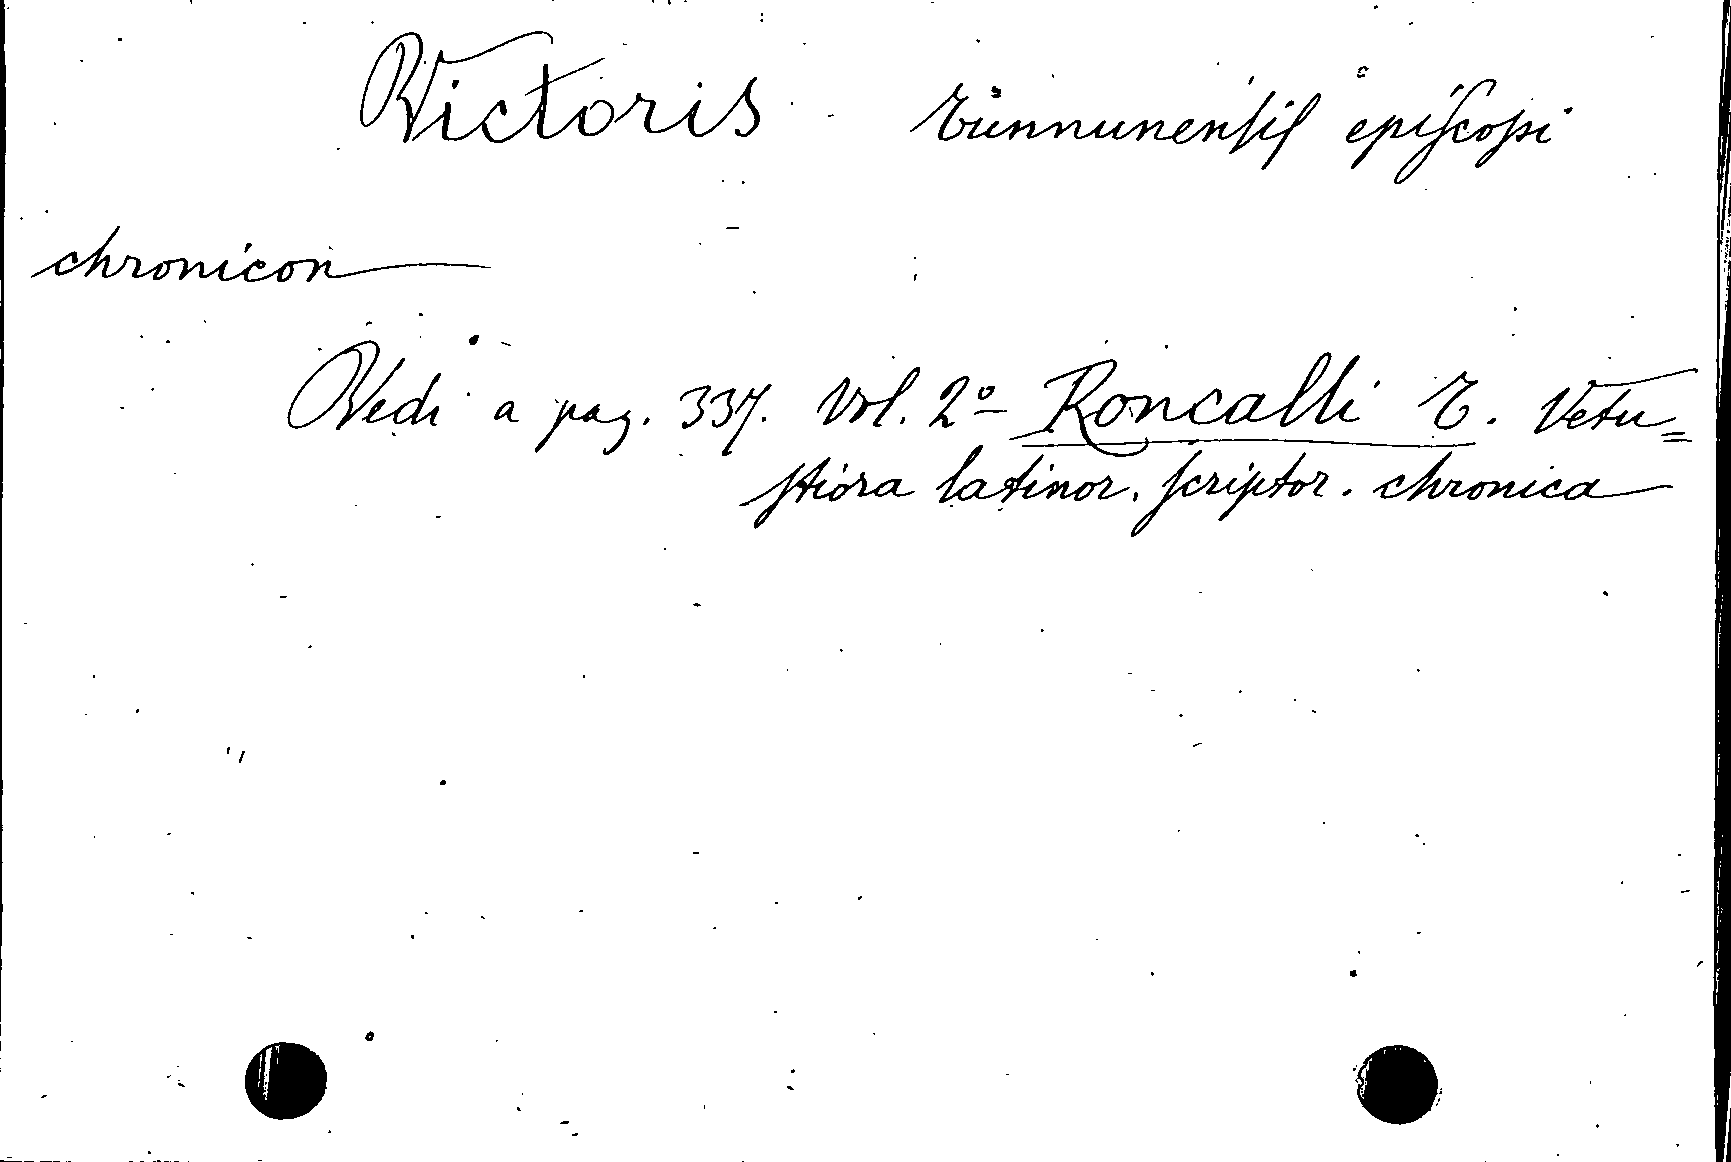 Victoris Tunnunensis episcopi
chronicon
Vedi a pag. 337. Vol. 2º Roncalli T. Vetu=
stiora latinor. scriptor. chronica